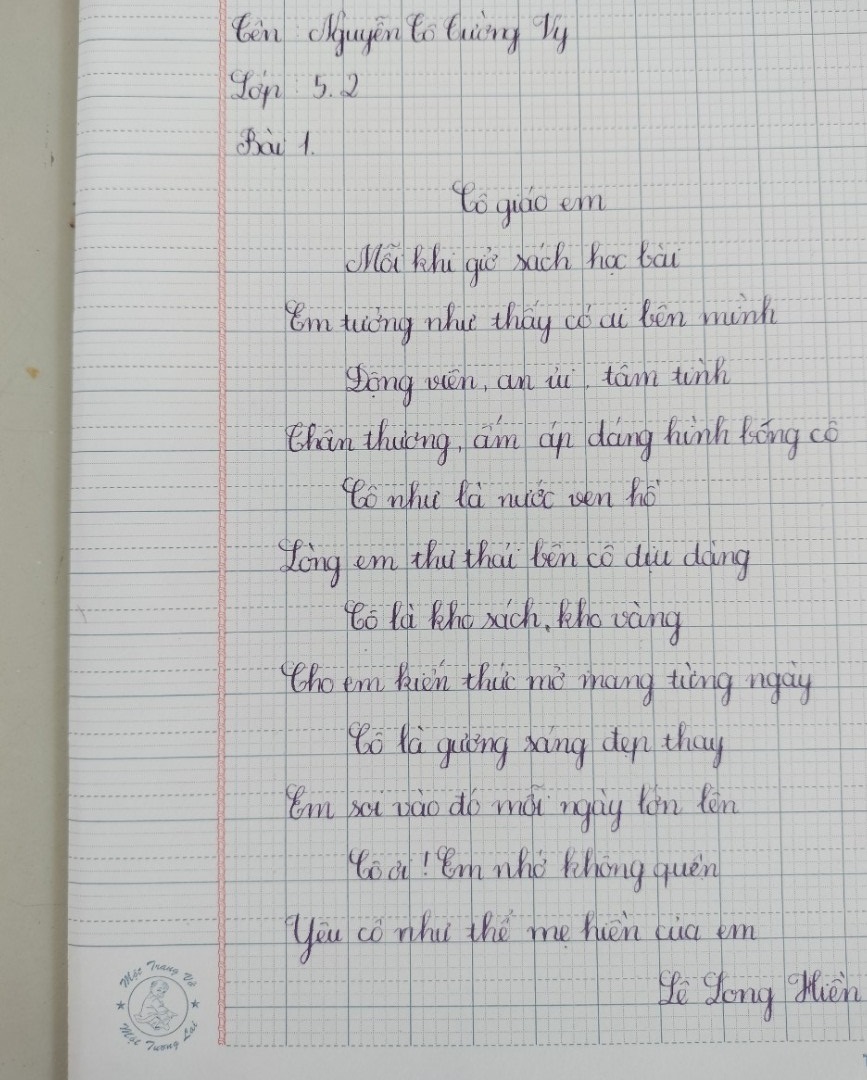 Tên: Nguyễn Tô Tường Vy
Lớp: 5.2
Bài 1.
Cô giáo em
Mỗi khi giở sách học bài
Em tưởng như thấy có ai bên mình
Động viên, an ủi, tâm tình
Thân thương, ấm áp dáng hình bóng cô
Cô như là nước ven hồ
Lòng em thư thái bên cô dịu dàng
Cô là kho sách, kho vàng
Cho em kiến thức mở mang từng ngày
Cô là gương sáng đẹp thay
Em soi vào đó mỗi ngày lớn lên
Cô ơi! Em nhớ không quên
Yêu cô như thể mẹ hiền của em
Lê Long Hiền
Một Trang Vở
Một Tương Lai